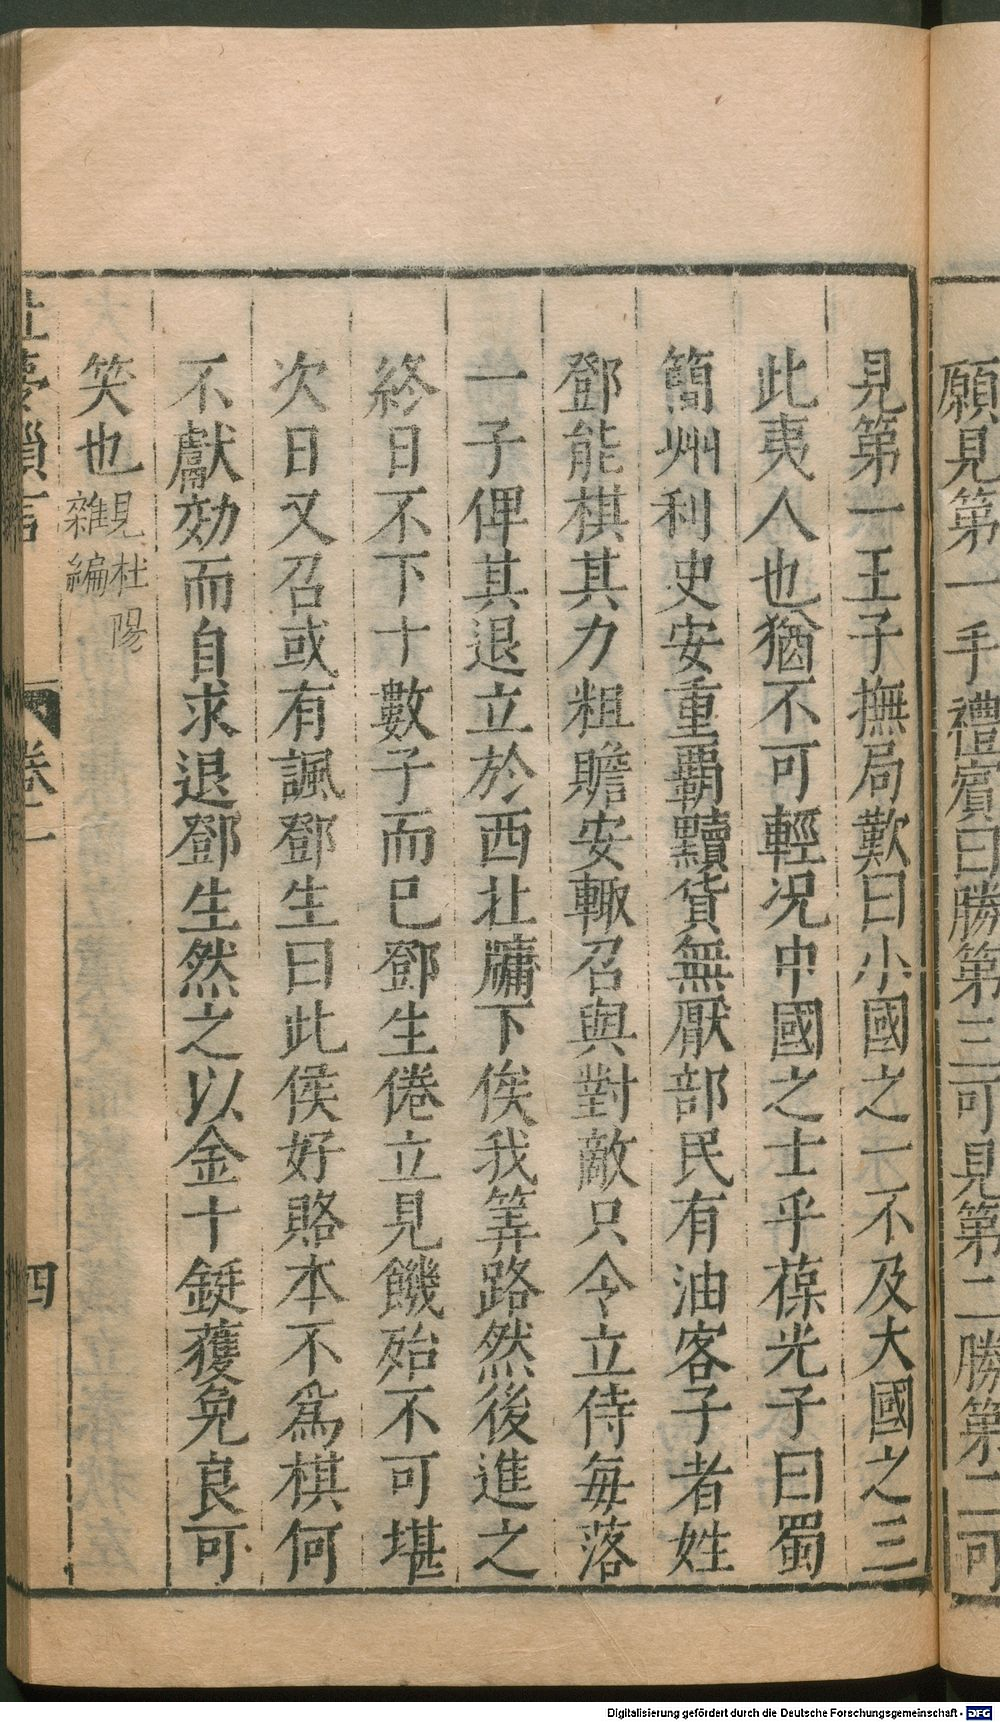 願見第一手禮賓曰勝第三可見第二勝第二可
見第一王子撫局歎曰小國之一不及大國之三
此夷人也猶不可輕况中國之士乎葆光子曰蜀
簡州刺史安重霸黷貨無厭部民有油客子者姓
鄧能棋其力粗贍安輙召與對敵只令立侍每落
一子俾其退立於西北牖下俟我筭路然後進之
終日不下十數子而已鄧生倦立見饑殆不可堪
次日又召或有諷鄧生曰此侯好賂本不爲棋何
不獻効而自求退鄧生然之以金十鋌獲免良可
笑也見杜陽
雜編
北夢瑣言
卷一
四
Digitalisierung gefördert durch die Deutsche Forschungsgemeinschaft - DFG